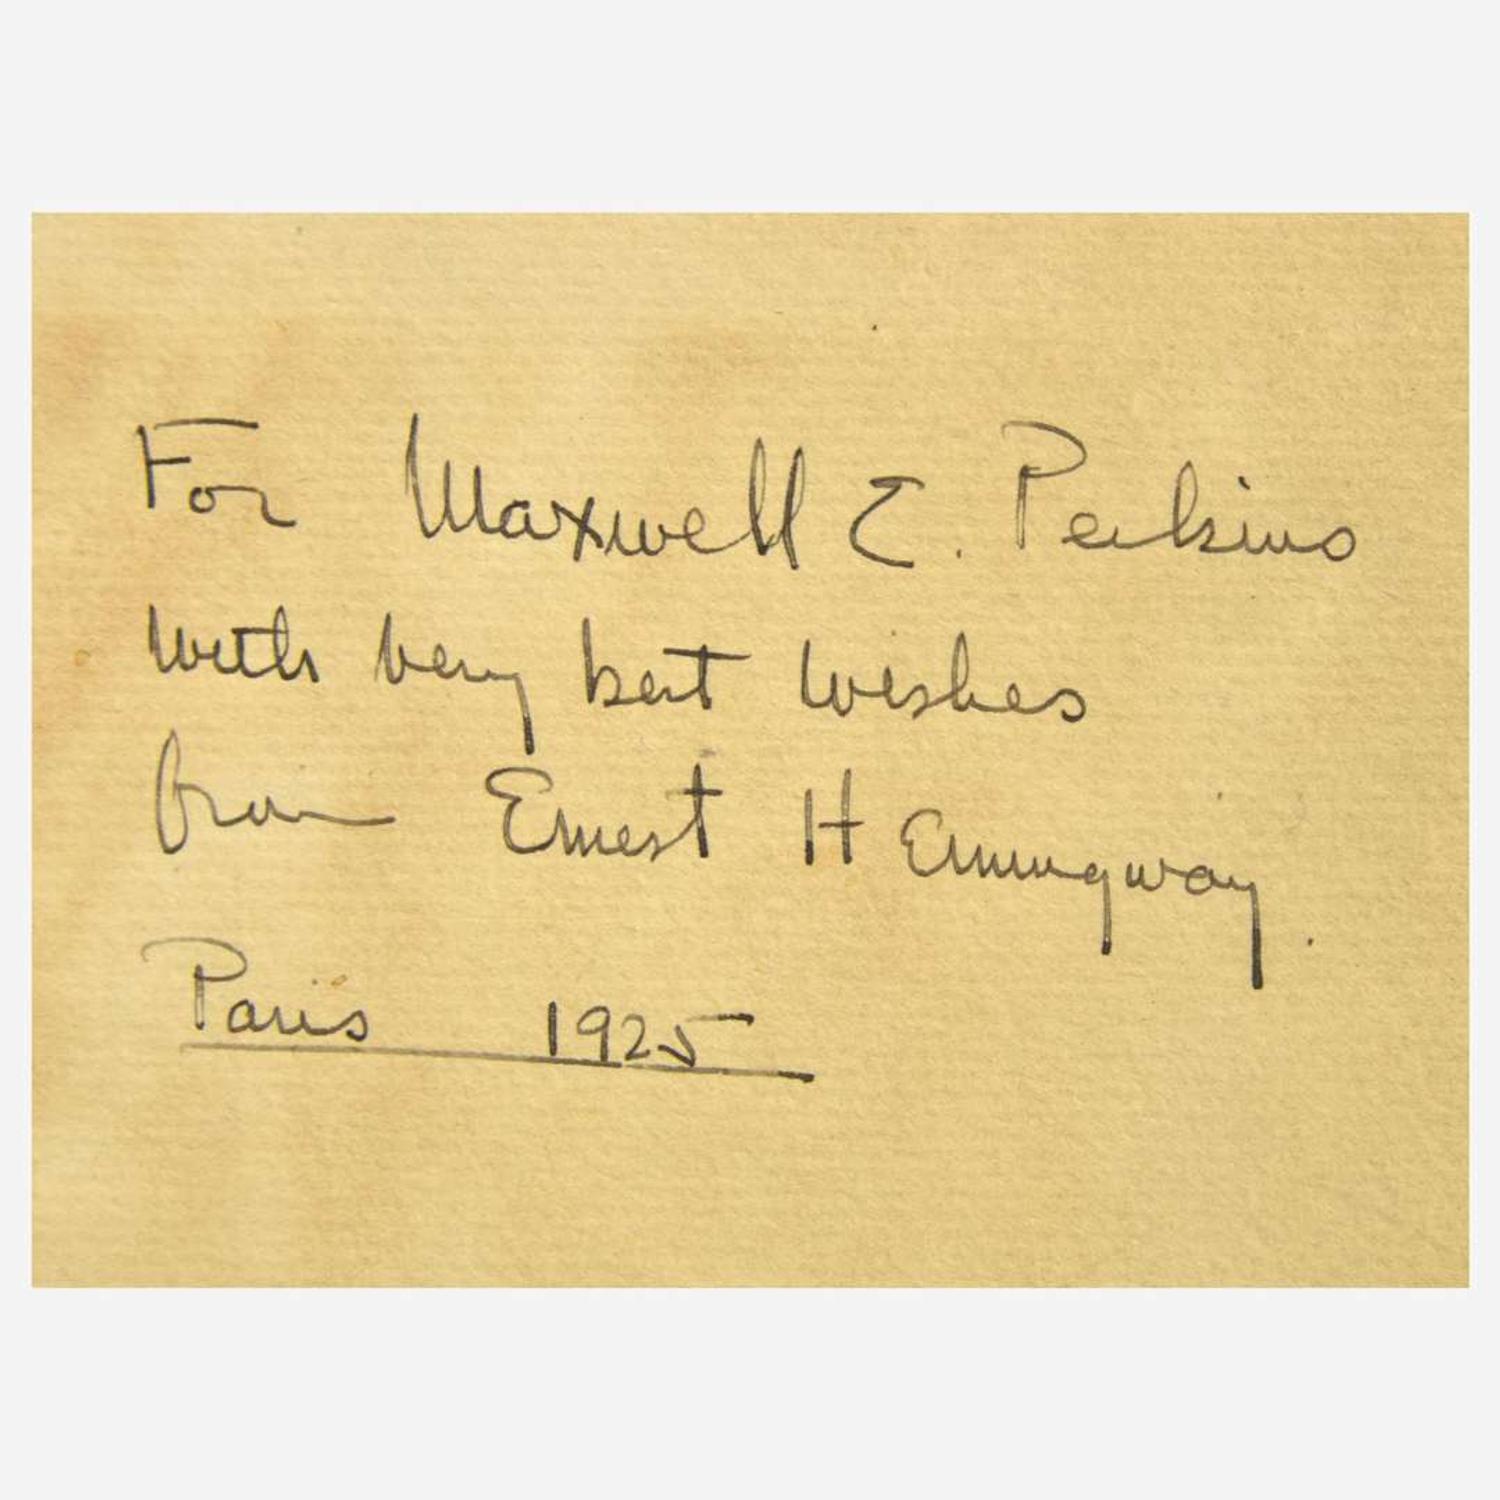 For Maxwell E. Perkins
with very best wishes
from Ernest Hemingway.
Paris 1925